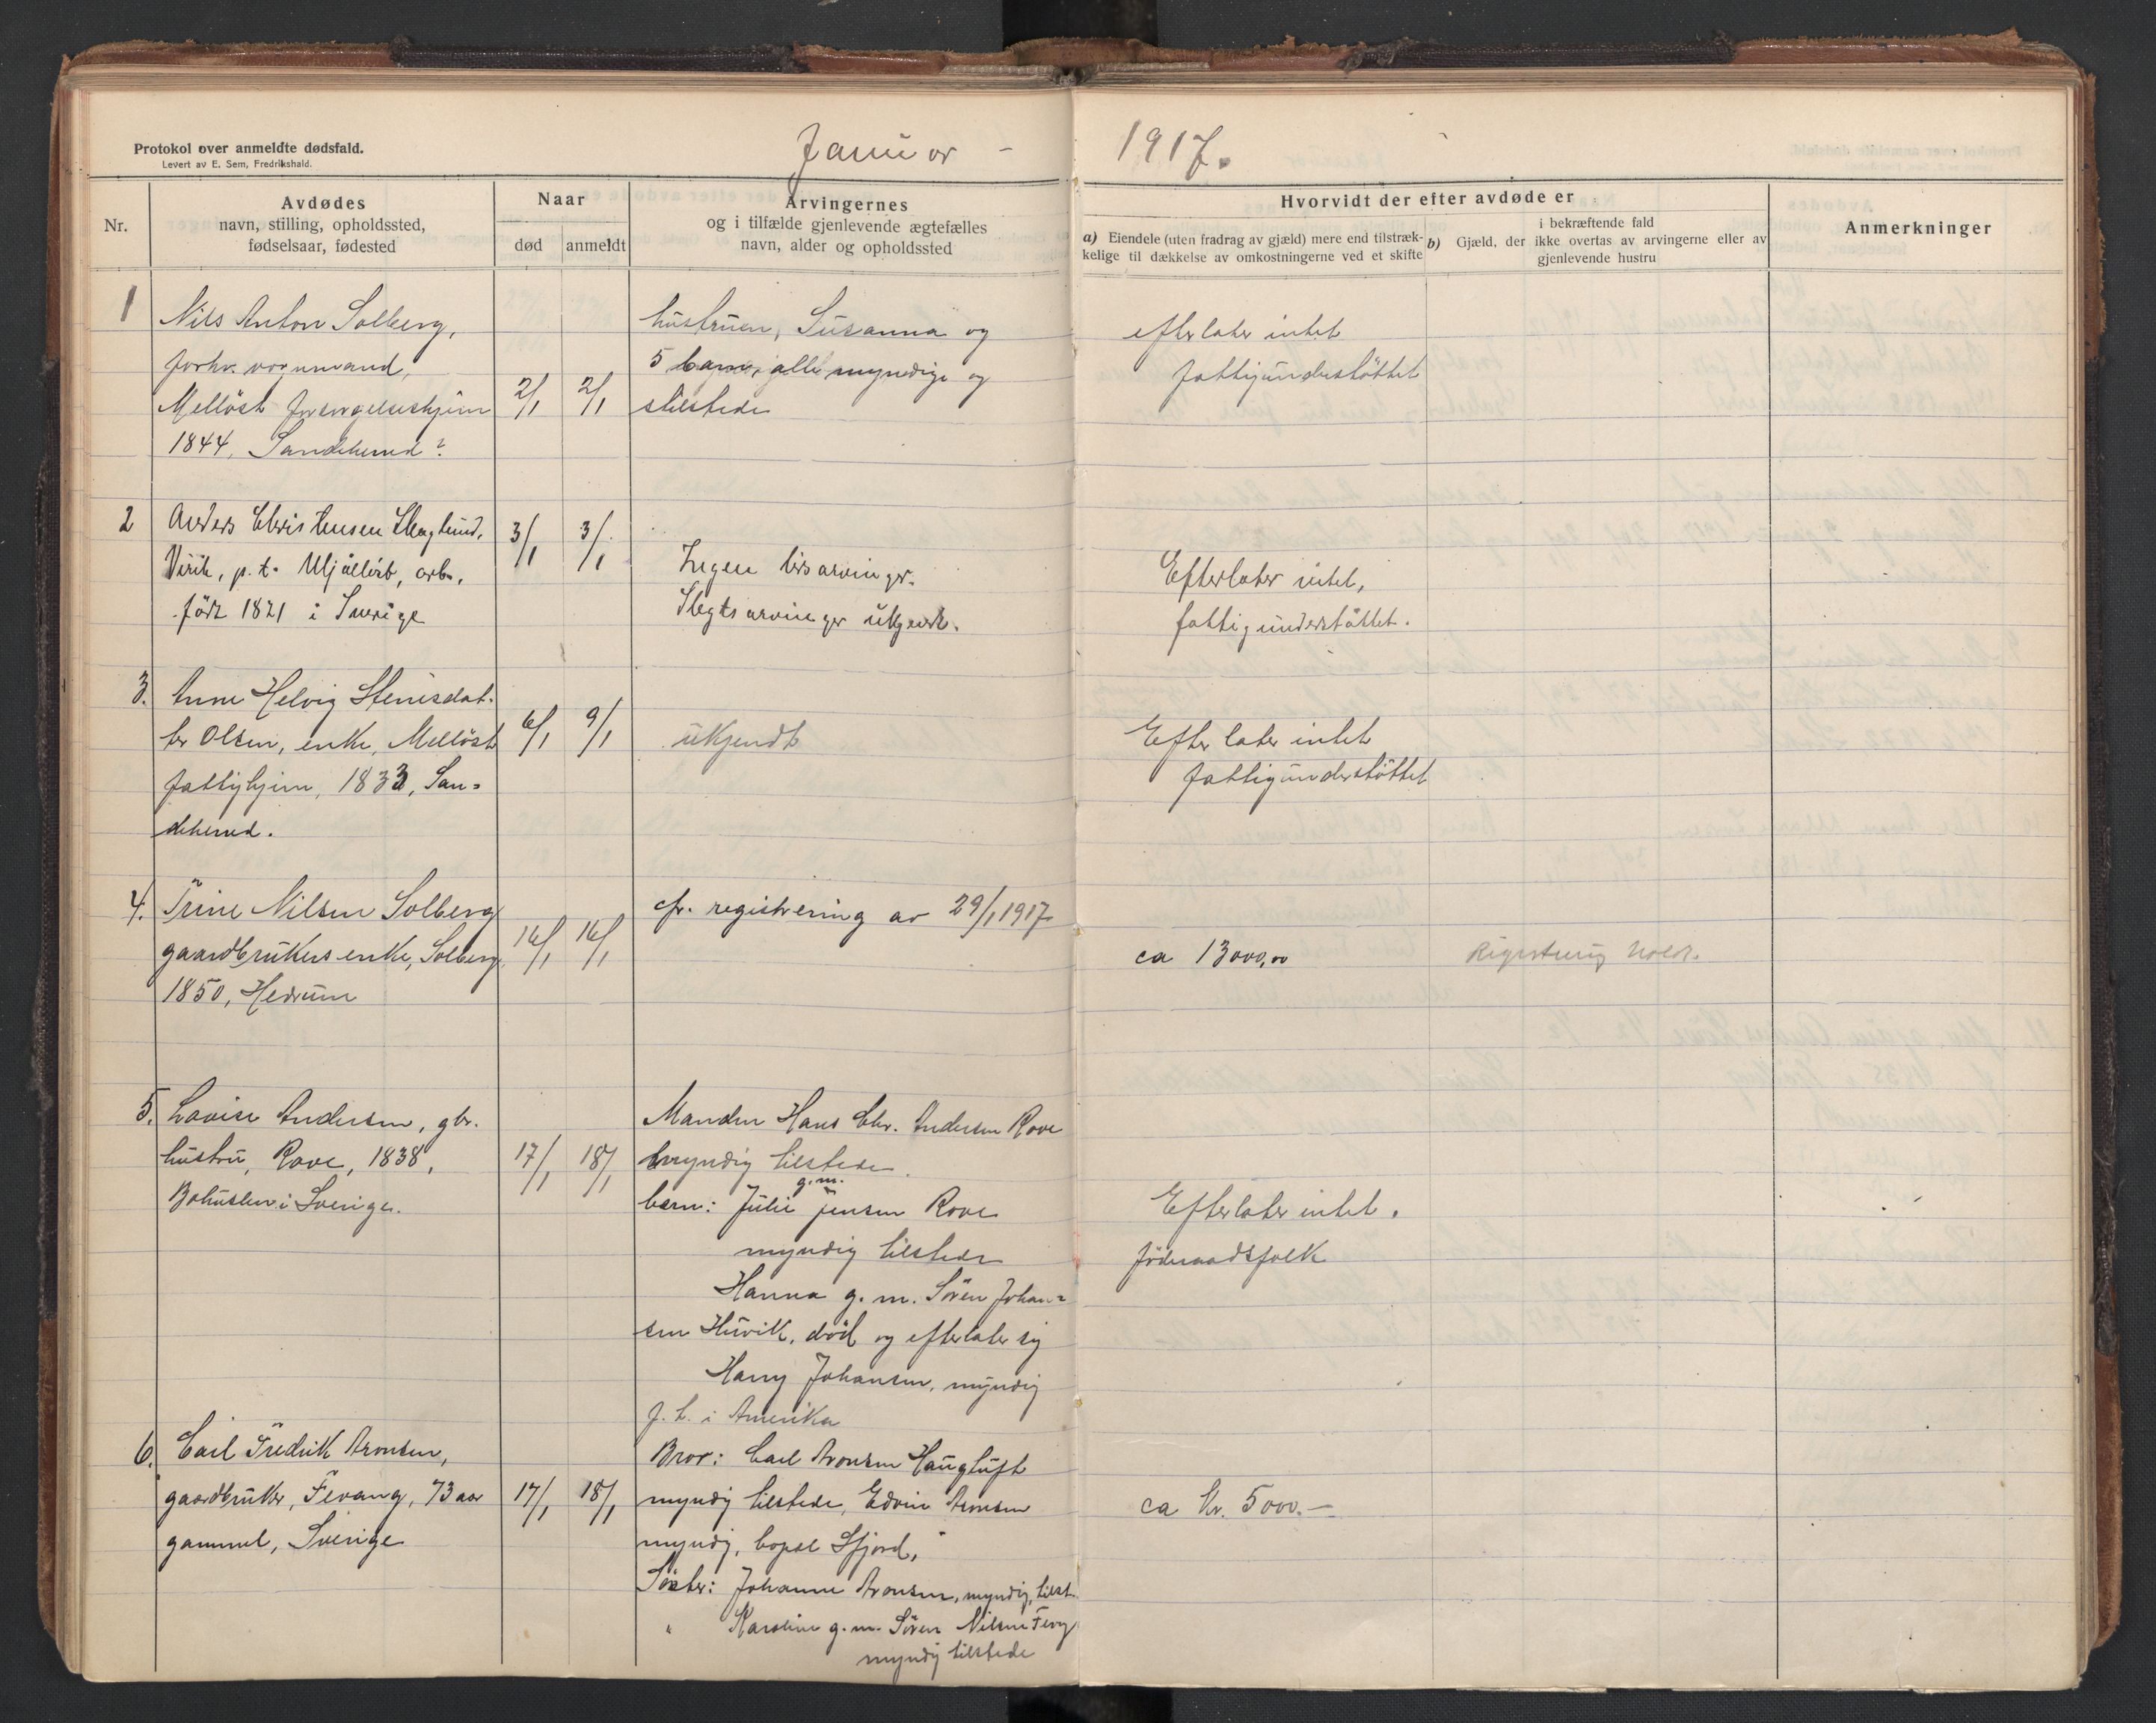 Protokol over anmeldte dødsfald.
Levert av E. Sem, Fredrikshald.
Januar - 1917.
Nr.
Avdødes
navn, stilling, opholdssted,
fødselsaar, fødested
Naar
død
anmeldt
Arvingernes
og i tilfælde gjenlevende ægtefælles
navn, alder og opholdssted
Hvorvidt der efter avdøde er
a) Eiendele (uten fradrag av gjæld) mere end tilstræk-
kelige til dækkelse av omkostningerne ved et skifte
b) Gjæld, der i bekræftende fald
ikke overtas av arvingerne eller av
gjenlevende hustru
Anmerkninger
1
Nils Anton Solberg,
forhv. vognmand,
Melløst forsørgelseshjem
1844, Sandeherred?
2/1
2/1
hustruen, Susanna og
5 barn, alle myndige og
tilstede
efterlater intet
fattigunderstøttet
2
Anders Christensen
Virik, p.t. arb.,
født 1821 i Sverige
3/1
3/1
Ingen livsarvinger.
Slegtsarvinger ukjendt.
Efterlater intet,
fattigunderstøttet.
3.
Anne Helvig Stenisdat-
ter Olsen, enke, Melløst
fattighjem, 1833, San-
deherred.
6/1
9/1
ukjendt
Efterlater intet
fattigunderstøttet
4.
Trine Nilsen Solberg
gaardbrukers enke, Solberg
1850, Hedrum
16/1
16/1
cfr. registrering av 29/1 1917
ca 13000,00
Registrering holdt.
5.
Lovise Andersen, gbr.
hustru, Rove, 1838,
Bohuslen i Sverige.
17/1
18/1
Manden Hans Chr. Andersen Rove
myndig tilstede.
barn: Julie g.m. Jensen Rove
myndig tilstede
Hanna g. m. Søren Johan-
sen Huvik, død og efterlater sig
Harry Johansen, myndig
f. t. i Amerika
Efterlater intet.
føderaadsfolk
6.
Carl Fredrik Aronsen,
gaardbruker, Fevang, 73 aar
gammel, Sverige
17/1
18/1
Bror: Carl Aronsen Haugtuft
myndig tilstede, Edvin Aronsen
myndig, bopæl Sfjord,
Søster: Johanne Aronsen, myndig, tilst.
" Karoline g. m. Søren Nilsen Fevg
myndig tilstede
ca kr. 5000.—